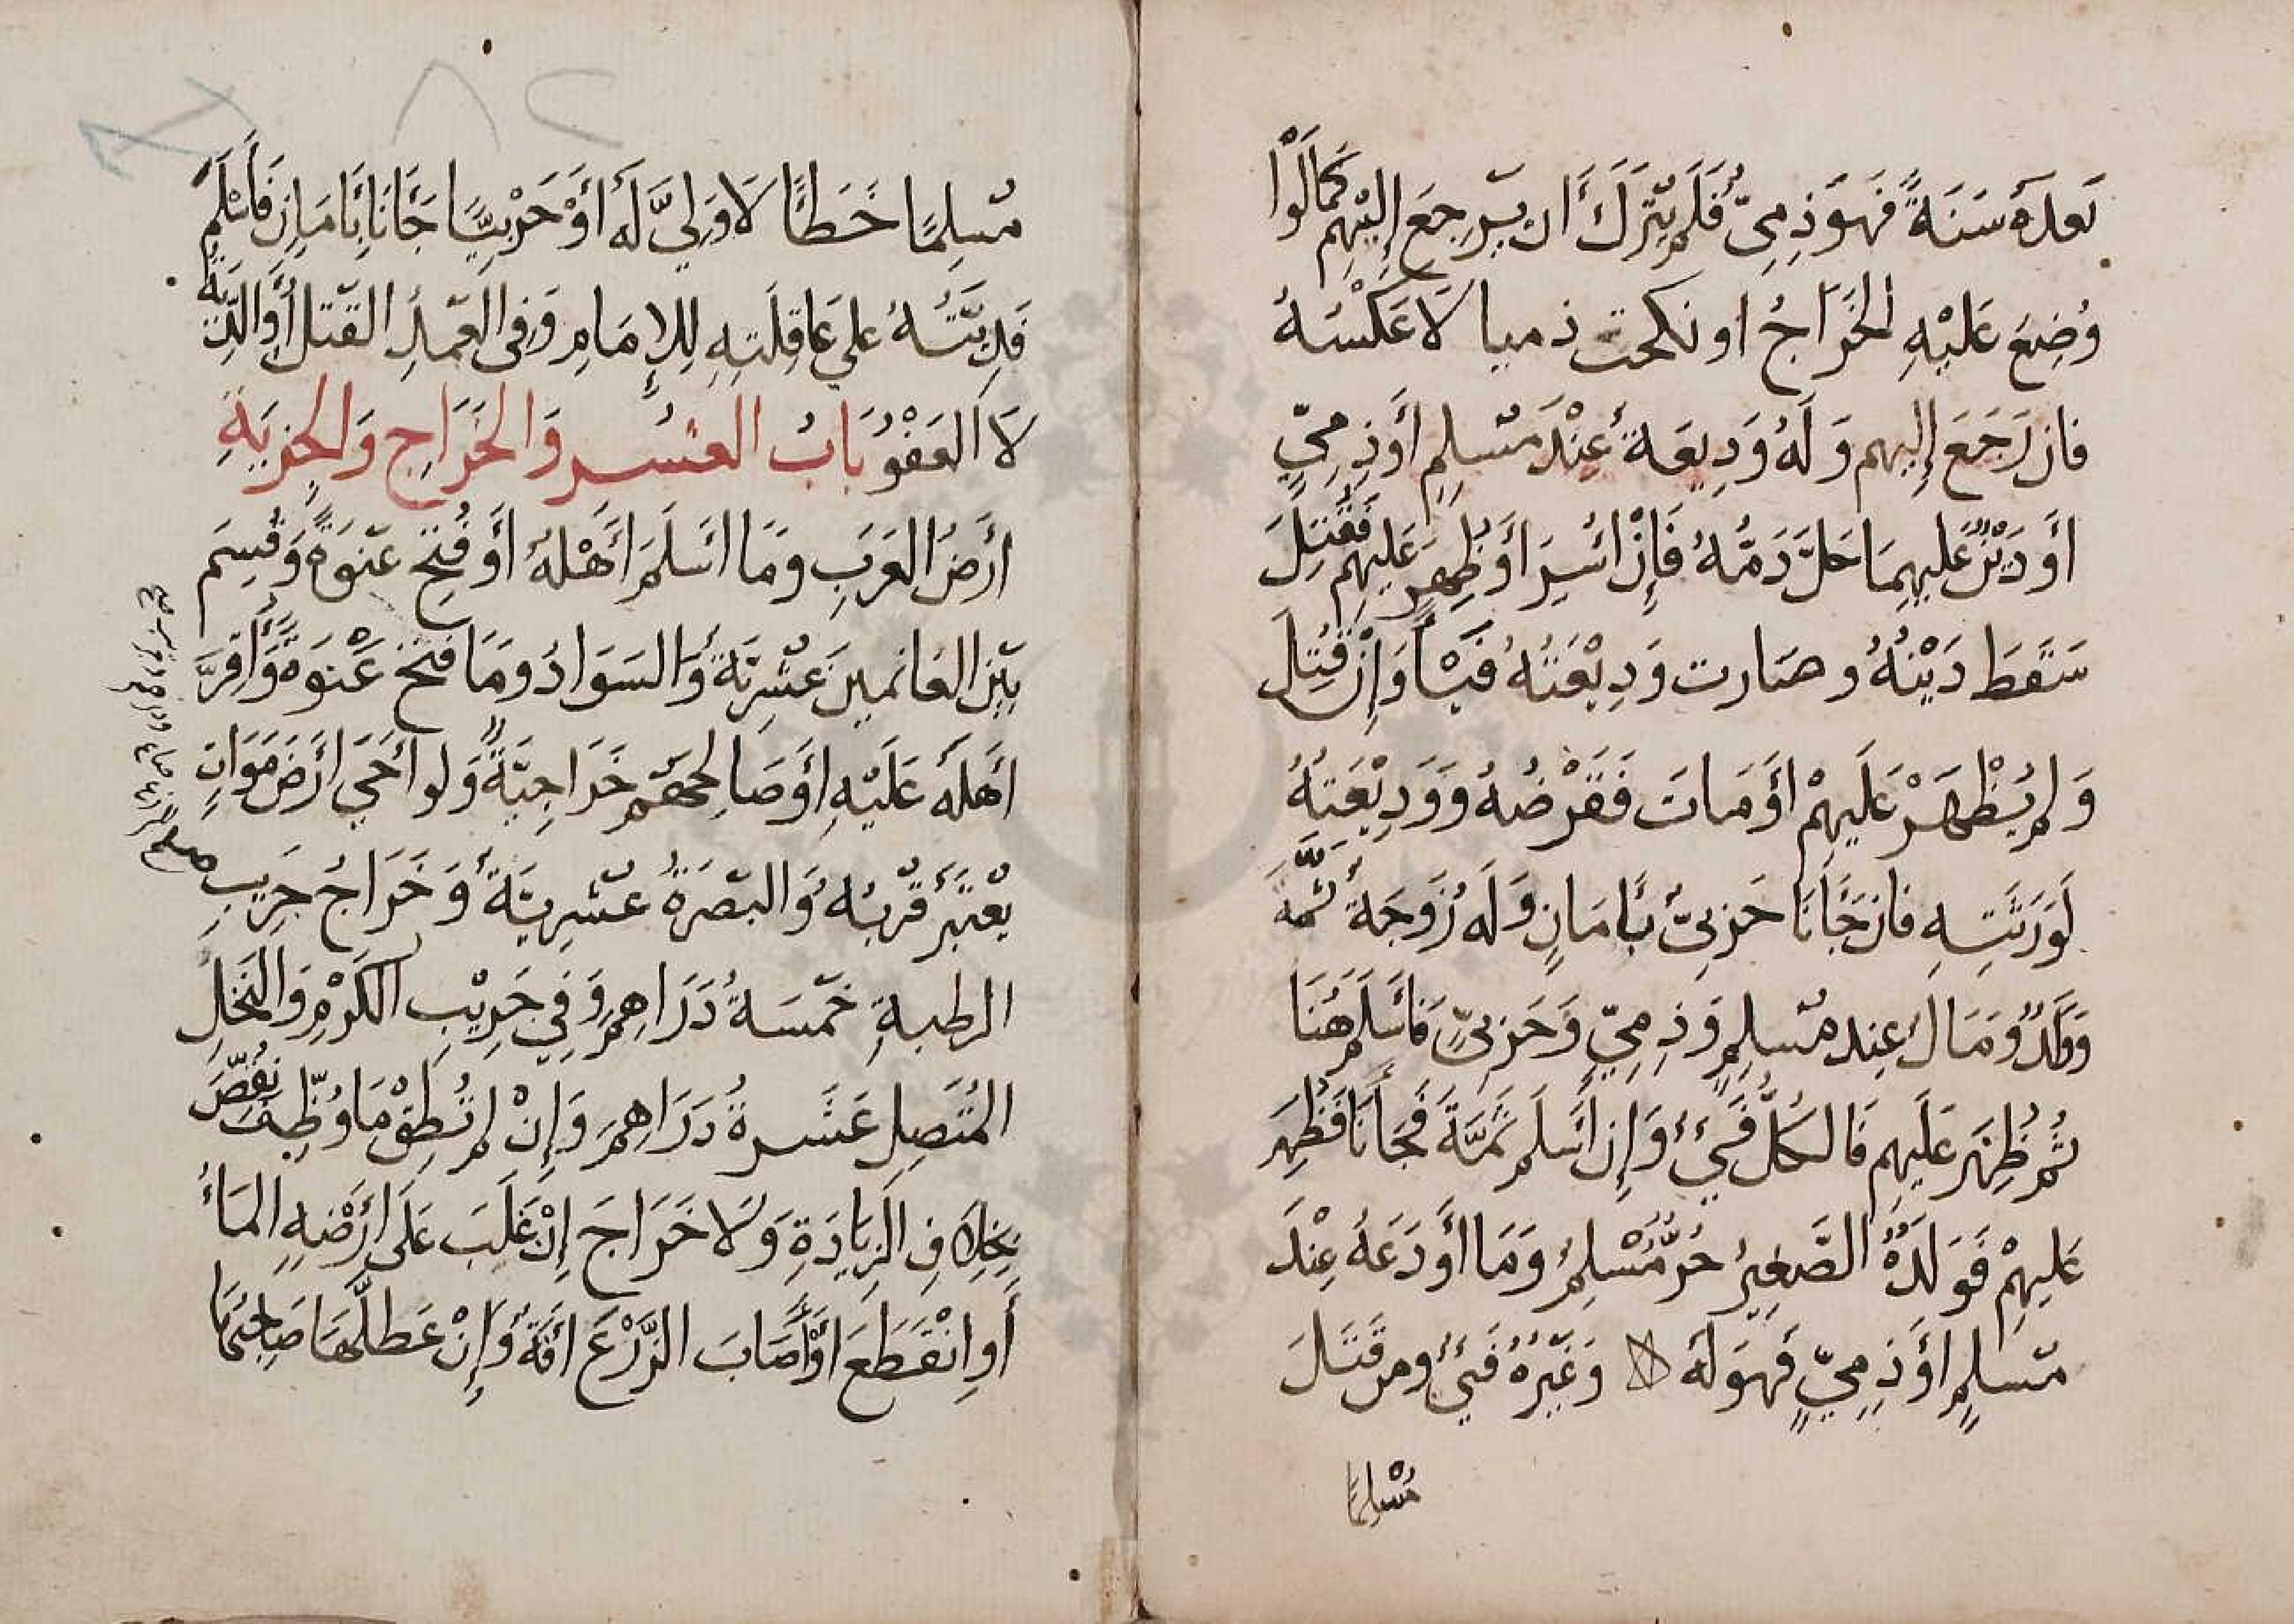 بَعدَهُ سَنَةً فَهُوَ ذِمِيّ فَلَم يُتْرَك أَن يَرجِعَ إِلَيْهِم كَمَا لَوْ
وُضِعَ عَلَيْهِ الخَرَاجُ او نكحت ذميا لَا عَكْسُهُ
فان رَجَعَ إِليهم وَلَهُ وَدِيعَة عِنْدَ مُسلِمٍ أَو ذِمِيٍّ
أَو دَيْنٌ عَليهِمَا حَلَّ دَمُهُ فَإِنْ أُسِرَ أَو ظُهِرَ عَلَيهِم فَقُتِلَ
سَقَطَ دَيْنُهُ وصَارت وَدِيْعَتُهُ فَيْأً وَإِنْ قُتِلَ
وَلم يُظْهَرْ عَلَيهِمْ أَو مَاتَ فَقَرْضُهُ وَوَدِيْعَتُهُ
لِوَرَثَتِهِ فان جَاءنَا حَربِيّ بأَمَانٍ وَلَه زَوجَة ثَمَّهَ
وَوَلَدٌ وَمَال عِند مُسلِمٍ وَذِمِيّ وَحَربِيٍّ فَأَسلَمَ هُنَا
ثُم ظُهِرَ عَلَيهِم فَالكُلُّ فَيْءٌ وَإِن أَسلَم ثَمَّةَ فَجَاءنَا فَظُهِرَ
عَلَيهِمْ فَوَلَدُهُ الصَّغِيرُ حُرٌّ مُسْلِمٌ وَمَا أَودَعَهُ عِنْدَ
مُسلِمٍ أَو ذِمِيٍّ فَهوَ لَهُ وَغَيْرُهُ فَيْءٌ ومن قَتَلَ
مُسْلِمًا
٨٢
مُسلِمًا خَطَأً لَا وَلِيَّ لَهُ أَوْ حَرْبِيًّا جَاءنَا بِأَمَانٍ فَأَسْلَمَ
فَدِيَتُهُ على عَاقِلَتِهِ لِلإِمَامِ وَفِي العَمدِ القَتل أَوِ الدِّيَة
لَا العَفْوُ بَابُ العُشُرِ وَالخَرَاجِ وَالجِزيَةِ
أَرَضُ العَرَبِ وَمَا أَسلَمَ أَهْلُهُ أَو فُتِحَ عَنوَةً وَقُسِمَ
بَيْنَ الغَانِمينَ عُشرِيَّةٌ وَالسَوَادُ وَمَا فُتِحَ عَنْوَةً وَأُقِرَّ
أَهلُهُ عَلَيْهِ أَو صَالَحَهُم خَرَاجِيَّةٌ وَلو أَحيَ أَرَضَ مَوَاتٍ
يُعْتَبَرُ قُربُهُ وَالبَصرَةُ عُشرِيَّةٌ وَخَرَاجُ جَرِيبٍ
الرطبةِ خَمسَةُ دَرَاهِم وَفِي جَرِيْبِ الكَرْمِ وَالنَخلِ
المُتَصِلِ عَشَرةُ دَرَاهِمَ وَإِنْ لم تُطِقْ مَا وُظِّفَ نُقِّصَ
بِخِلَافِ الزِيَادَةِ وَلَا خَرَاجَ إِنْ غَلَبَ عَلَى أَرْضِهِ المَاءُ
أَوِ انْقَطَعَ أَوْ أَصَابَ الزَّرْعَ افَةٌ وَإِنْ عَطَلَّهَا صَاحِبُهَا